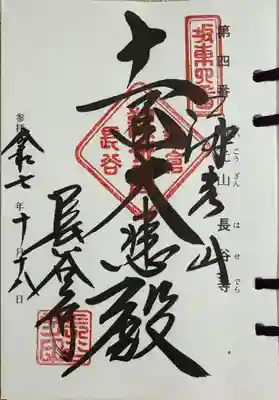 第四番
海光山長谷寺
こうざん　はせでら
坂東四番
海光山
十一面大悲殿
鎌倉
長谷
長谷寺
参拝
令和七年十月十八日